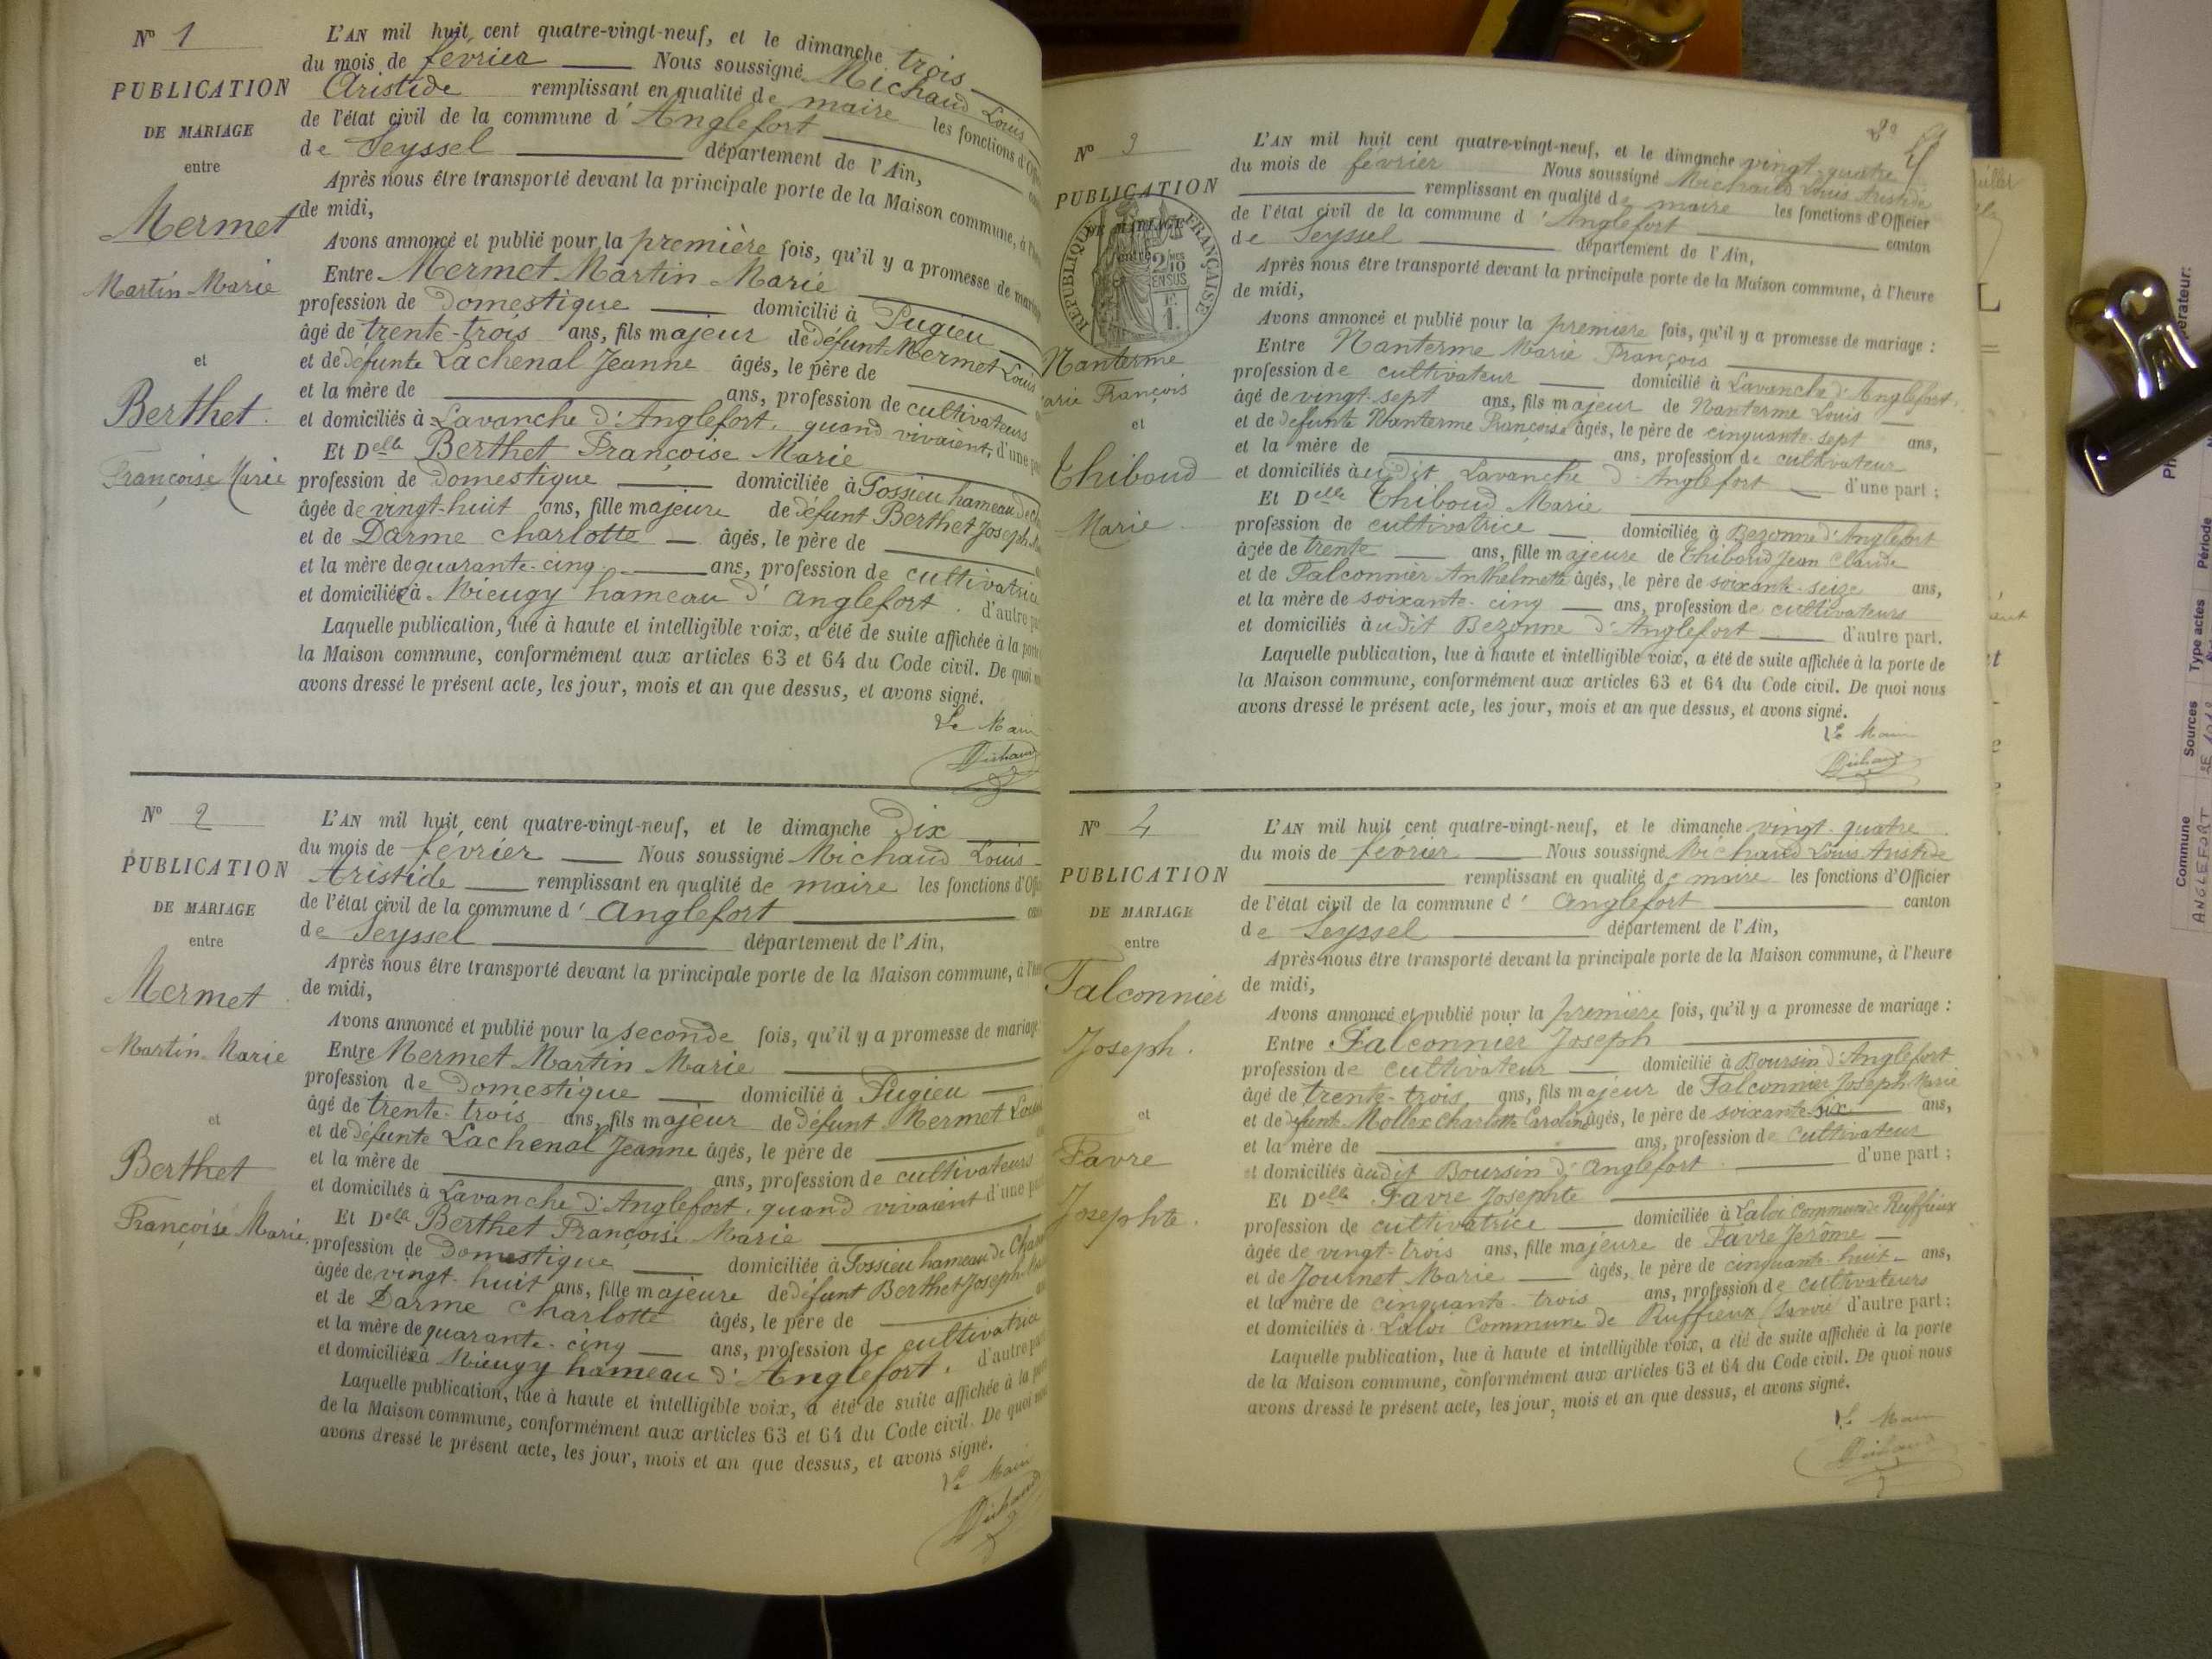 Nº 1
PUBLICATION
DE MARIAGE
entre
Mermet
Martin Marie
et
Berthet
Françoise Marie
L'AN mil huit cent quatre-vingt-neuf, et le dimanche trois
du mois de février Nous soussigné Michaud Louis
Aristide remplissant en qualité de maire les fonctions d'Offi
de l'état civil de la commune d' Anglefort
de Seyssel département de l'Ain,
Après nous être transporté devant la principale porte de la Maison commune, à l'heu
de midi,
Avons annoncé et publié pour la première fois, qu'il y a promesse de mariag
Entre Mermet Martin Marie
profession de domestique domicilié à Pugieu
âgé de trente-trois ans, fils majeur de défunt Mermet Louis
et de défunte Lachenal Jeanne âgés, le père de
et la mère de ans, profession de cultivateurs
et domiciliés à Lavanche d'Anglefort, quand vivaient, d'une pa
Et Delle Berthet Françoise Marie
profession de domestique domiciliée à Fossieu hameau de
âgée de vingt-huit ans, fille majeure de défunt Berthet Joseph
et de Darme charlotte âgés, le père de
et la mère de quarante-cinq ans, profession de cultivatrice
et domiciliée à Mieugy hameau d' anglefort. d'autre pa
Laquelle publication, lue à haute et intelligible voix, a été de suite affichée à la porte
la Maison commune, conformément aux articles 63 et 64 du Code civil. De quoi
avons dressé le présent acte, les jour, mois et an que dessus, et avons signé.
Le Maire
Michaud
Nº 2
PUBLICATION
DE MARIAGE
entre
Mermet
Martin Marie
et
Berthet
Françoise Marie
L'AN mil huit cent quatre-vingt-neuf, et le dimanche dix
du mois de février Nous soussigné Michaud Louis
Aristide remplissant en qualité de maire les fonctions d'Offi
de l'état civil de la commune d' anglefort
de Seyssel département de l'Ain,
Après nous être transporté devant la principale porte de la Maison commune, à l'heu
de midi,
Avons annoncé et publié pour la seconde fois, qu'il y a promesse de mariage
Entre Mermet Martin Marie
profession de domestique domicilié à Pugieu
âgé de trente-trois ans, fils majeur de défunt Mermet Louis
et de défunte Lachenal Jeanne âgés, le père de
et la mère de ans, profession de cultivateurs
et domiciliés à Lavanche d'Anglefort, quand vivaient d'une pa
Et Delle Berthet Françoise Marie
profession de domestique domiciliée à Fossieu hameau de
âgée de vingt-huit ans, fille majeure de défunt Berthet Joseph
et de Darme charlotte âgés, le père de
et la mère de quarante-cinq ans, profession de cultivatrice
et domiciliée à Mieugy hameau d'Anglefort. d'autre pa
Laquelle publication, lue à haute et intelligible voix, a été de suite affichée à la
de la Maison commune, conformément aux articles 63 et 64 du Code civil. De quoi
avons dressé le présent acte, les jour, mois et an que dessus, et avons signé.
Le Maire
Michaud
Nº 3
PUBLICATION
DE MARIAGE
entre
RÉPUBLIQUE FRANÇAISE
Nanterme
arie François
et
Thiboud
Marie
L'AN mil huit cent quatre-vingt-neuf, et le dimanche vingt-quatre
du mois de février Nous soussigné Michaud Louis Aristide
remplissant en qualité de maire les fonctions d'Officier
de l'état civil de la commune d 'Anglefort canton
de Seyssel département de l'Ain,
Après nous être transporté devant la principale porte de la Maison commune, à l'heure
de midi,
Avons annoncé et publié pour la première fois, qu'il y a promesse de mariage :
Entre Nanterme Marie François
profession de cultivateur domicilié à Lavanche d'Anglefort,
âgé de vingt-sept ans, fils majeur de Nanterme Louis
et de défunte Nanterme Françoise âgés, le père de cinquante-sept ans,
et la mère de ans, profession de cultivateur
et domiciliés à udit Lavanche d'Anglefort d'une part ;
Et Delle Thiboud Marie
profession de cultivatrice domiciliée à Bezonne d'Anglefort
âgée de trente ans, fille majeure de Thiboud Jean Claude
et de Falconnier Anthelmette âgés, le père de soixante-seize ans,
et la mère de soixante-cinq ans, profession de cultivateurs
et domiciliés à udit Bezonne d'Anglefort d'autre part.
Laquelle publication, lue à haute et intelligible voix, a été de suite affichée à la porte de
la Maison commune, conformément aux articles 63 et 64 du Code civil. De quoi nous
avons dressé le présent acte, les jour, mois et an que dessus, et avons signé.
Le Maire
Michaud
Nº 4
PUBLICATION
DE MARIAGE
entre
Falconnier
Joseph.
et
Favre
Josephte.
L'AN mil huit cent quatre-vingt-neuf, et le dimanche vingt-quatre
du mois de février Nous soussigné Michaud Louis Aristide
remplissant en qualité de maire les fonctions d'Officier
de l'état civil de la commune d' Anglefort canton
de Seyssel département de l'Ain,
Après nous être transporté devant la principale porte de la Maison commune, à l'heure
de midi,
Avons annoncé et publié pour la première fois, qu'il y a promesse de mariage :
Entre Falconnier Joseph
profession de cultivateur domicilié à Boursin d'Anglefort
âgé de trente-trois ans, fils majeur de Falconnier Joseph Marie
et de défunte Mollex Charlotte Caroline âgés, le père de soixante-six ans,
et la mère de ans, profession de cultivateur
et domiciliés à udit Boursin d'Anglefort d'une part ;
Et Delle Favre Josephte
profession de cultivatrice domiciliée à Laloi Commune de Ruffieux
âgée de vingt-trois ans, fille majeure de Favre Jérôme
et de Journet Marie âgés, le père de cinquante-huit ans,
et la mère de cinquante-trois ans, profession de cultivateurs
et domiciliés à Laloi Commune de Ruffieux (Savoie) d'autre part ;
Laquelle publication, lue à haute et intelligible voix, a été de suite affichée à la porte
de la Maison commune, conformément aux articles 63 et 64 du Code civil. De quoi nous
avons dressé le présent acte, les jour, mois et an que dessus, et avons signé.
Le Maire
Michaud
Commune Sources Type actes Période
ANGLEFORT